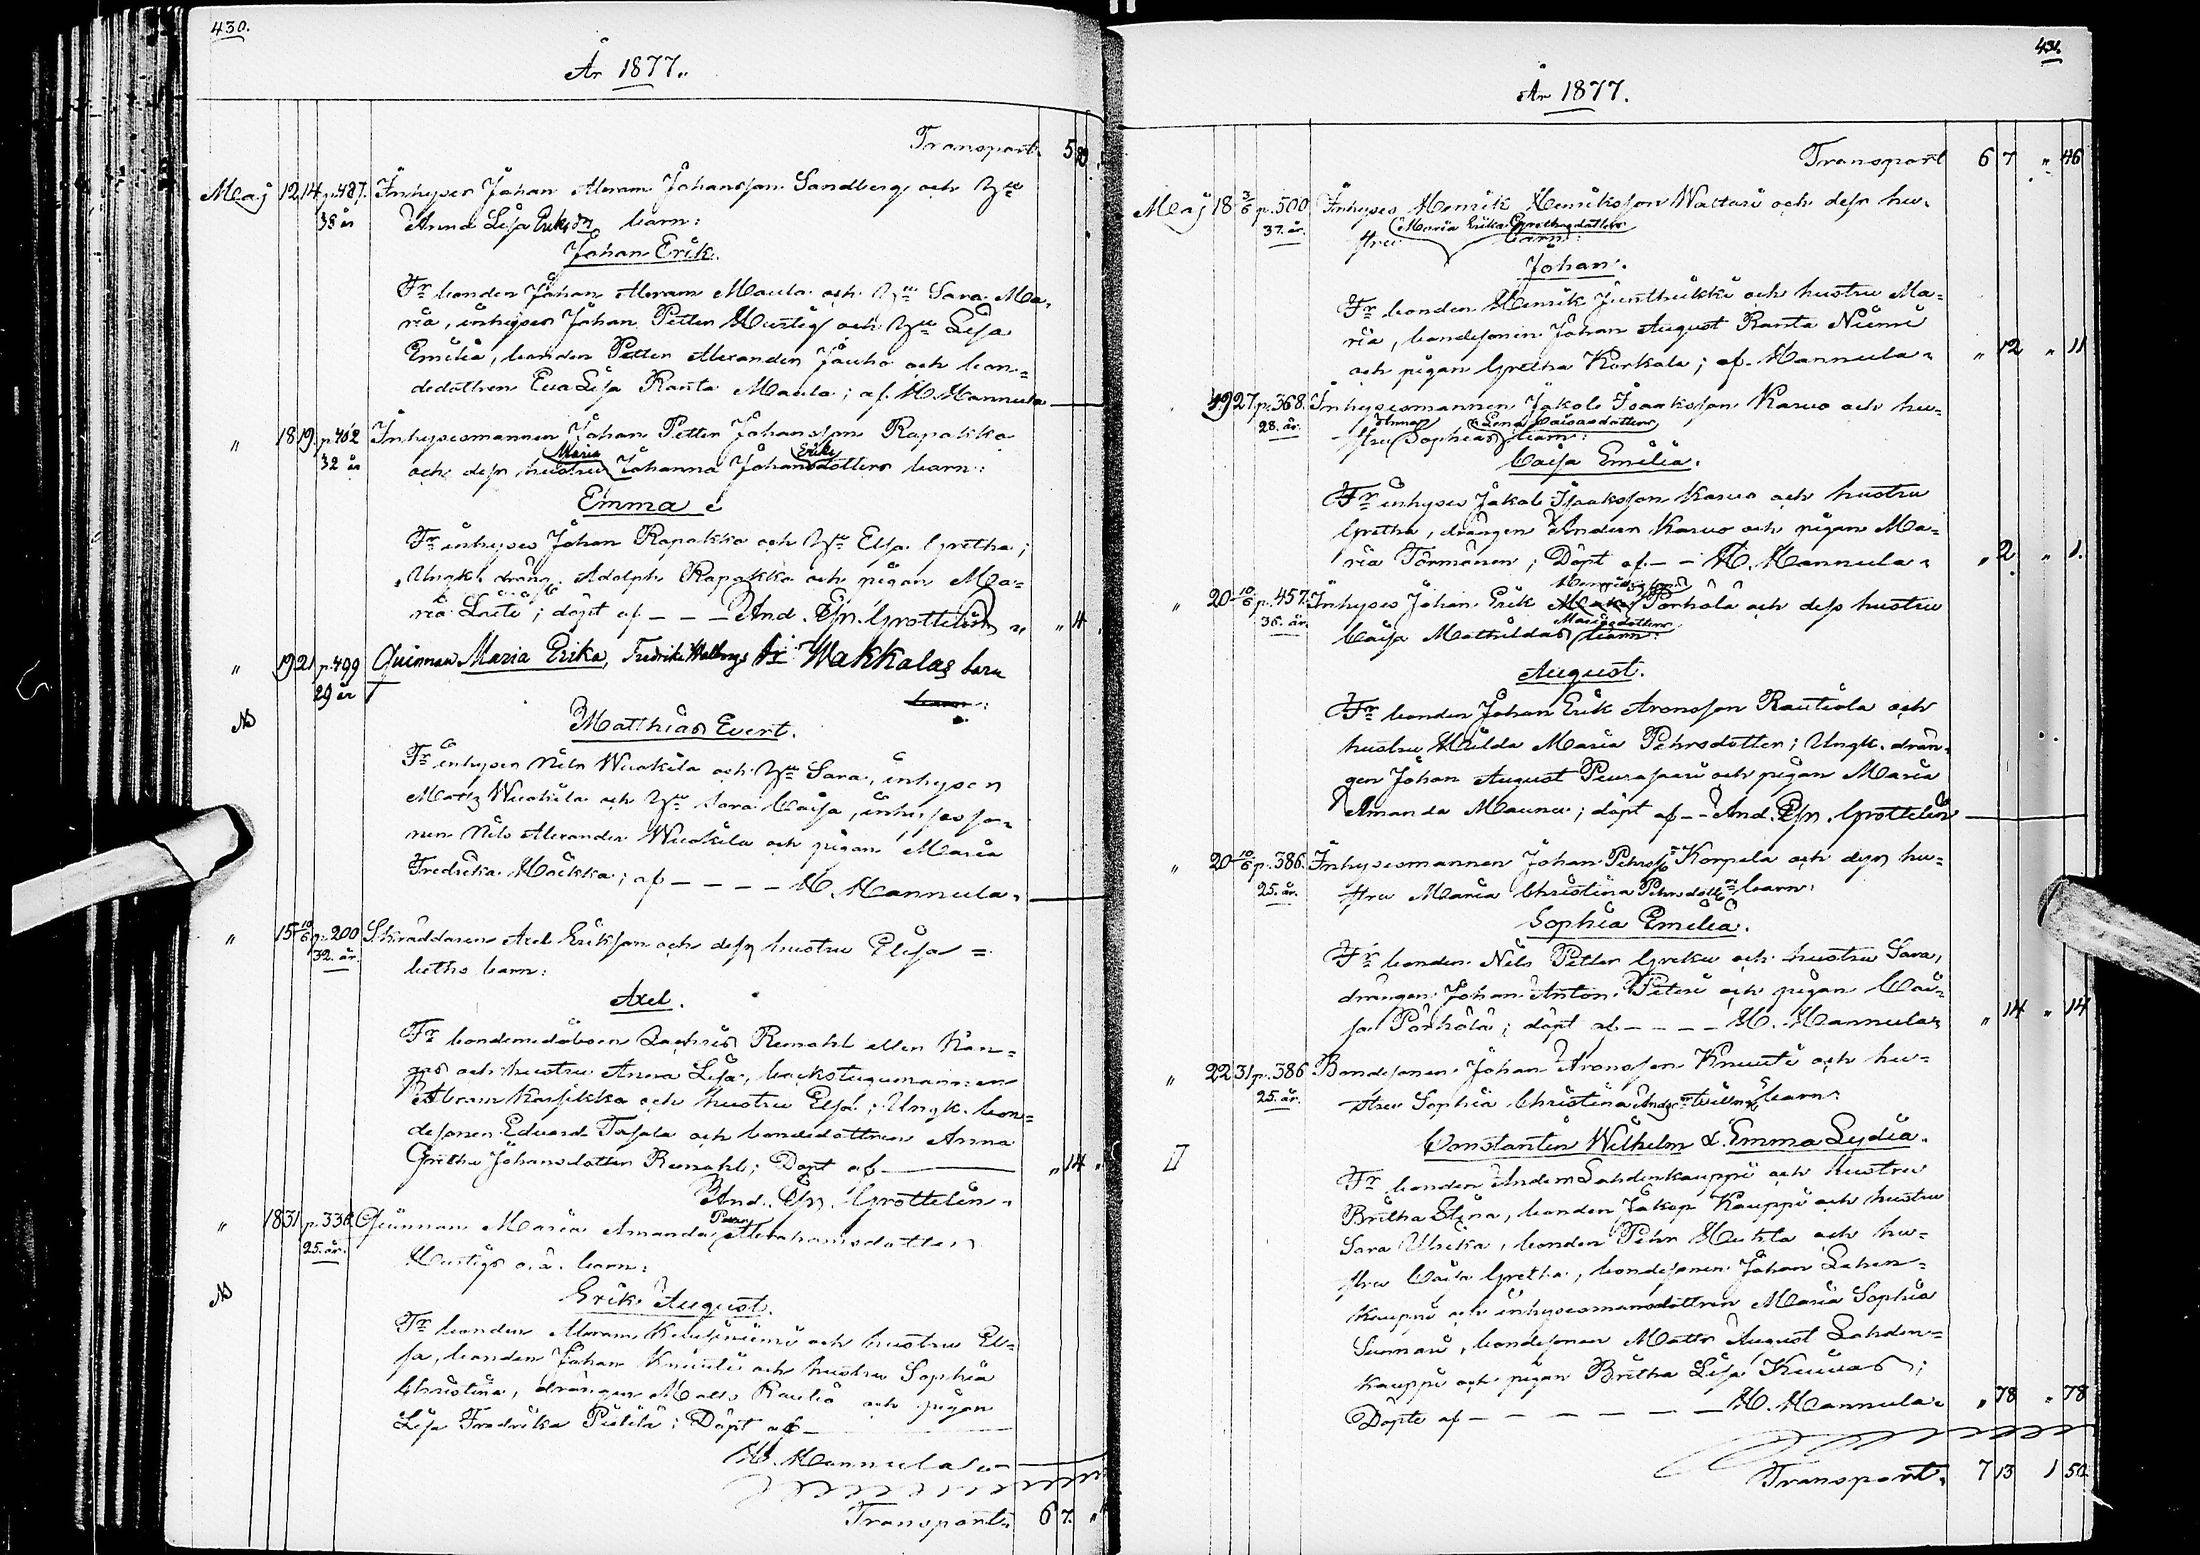 430.
År 1877.
Transport 5
Maj 12 14 p. 487. Inhyses Johan Abram Johansson Sandberg och Hu
38 år Anna Lisa Eriksdr barn:
Johan Erik.
Fr bonden Johan Abram Maula och Hu Sara Ma-
ria, inhyses Johan Petter Hurtig och Hu Lisa
Emilia, bonden Petter Alexander Jauho och bon-
dedottren Eva Lisa Ranta Maula; af H. Hannula
" 18 19 p. 402 Inhysesmannen Johan Petter Johansson Rapakko
32 år och dess hustru Maria Johanna Johansdotters barn:
Emma
Fr inhyses Johan Rapakko och Hu Elsa Gretha;
Ungk. dräng. Adolph Rapakko och pigan Ma-
ria; döpt af - - - And. Esn. Grottelin " 4
" 19 21 p. 499 Quinnan Maria Erika, Fredrika Wakkalas barn
29 år
barn:
Matthias Evert.
Fr inhyses Nils Wuokila och Hu Sara, inhyses
Matts Wuokila och Hu Sara Caisa, inhyses so-
nen Nils Alexander Wuokila och pigan Maria
Fredrika; af - - - - H. Hannula.
" 15 10/6 p. 200 Skräddaren Axel Eriksson och dess hustru Elisa=
32. år. beths barn:
Axel.
Fr bonden Zachris Remahl eller Kan-
gas och hustru Anna Lisa, backstugumannen
Abram Karsikko och hustru Elsa; Ungk. bon-
desonen Eduard och bondedottren Anna
Gretha Johansdotter Remahl; Döpt af " 14 "
And. Esn. Grottelin.
" 18 31 p. 336 Quinnan Maria Amanda Abrahamsdotter
25. år. Hurtigs o.ä. barn:
Erik August.
Fr bonden Abram och hustru El-
sa, bonden Johan Knuuti och hustru Sophia
Christina, drängen Matts Rautio och pigan
Lisa Fredrika; Döpt af
H. Hannula
Transport 6 7. "
431.
År 1877.
Transport 6 7 " 46
Maj 18 3/6 p. 500 Inhyses Henrik Henriksson Wattari och dess hu-
37. år. stru Maria Erika Grethasdotters barn:
Johan.
Fr bonden Henrik Junthikka och hustru Ma=
ria, bondesonen Johan August Ranta Niemi
och pigan Gretha Korkala; af Hannula. " 12 " 11
19 27 p. 368. Inhysesmannen Jakob Isaksson Karvo och hu-
28. år. stru Sophias barn:
Caisa Emilia.
Fr inhyses Jakob Isaksson Karvo och hustru
Gretha, drängen Anders Karvo och pigan Ma-
ria Törmänen; Döpt af - - H. Hannula. " 2 " 1.
" 20 10/6 p. 457. Inhyses Johan Erik Pörhölä och dess hustru
36. år. Caisa Mathildas barn:
August.
Fr bonden Johan Erik Aronsson Rautiola och
hustru Hilda Maria Pehrsdotter; Ungk. drän-
gen Johan August och pigan Maria
Amanda Maunu; döpt af - - And. Esn. Grottelin
" 20 10/6 p. 386. Inhysesmannen Johan Pehrss. Korpela och dess hu-
25. år. stru Maria Christina Pehrsdotters barn:
Sophia Emilia.
Fr bonden Nils Petter Greku och hustru Sara,
drängen Johan Anton och pigan Cai-
sa Pörhölä; döpt af - - - - H. Hannula. " 14 " 14
" 22 31 p. 386 Bondesonen Johan Aronsson Knuuti och hu-
25. år. stru Sophia Christina barn:
Constantin Wilhelm & Emma Lydia.
Fr bonden Anders Lahdenkauppi och hustru
Britha Stina, bonden Jakop Kauppi och hustru
Sara Ulrika, bonden Pehr Huhta och hu-
stru Caisa Gretha, bondesonen Johan Lahen-
kauppi och inhysesmansdottren Maria Sophia
Sunnari, bondesonen Matts August Lahden-
kauppi och pigan Britha Lisa;
Döpte af - - - - - - H. Hannula. " 78 " 78
Transport. 7 13 1 50